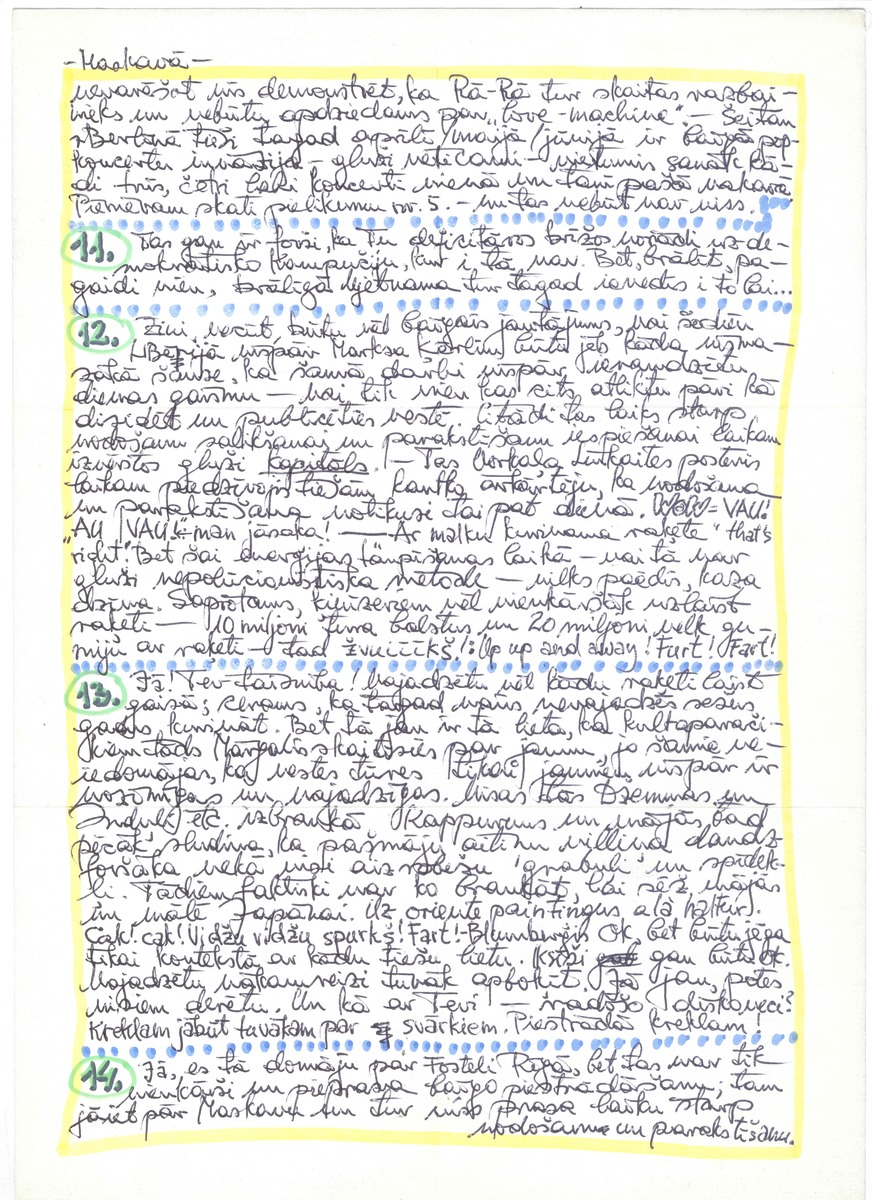 - Maskavā -
nevarēšot viņš demonstrēt, ka Rā-Rā tur skaitās razbai-
nieks un nebūtu apdziedams par "love-machine". - Šeitan
Berlīnē tieši tagad aprīlī/maijā/jūnijā ir baigā pop-
koncertu invāzija - gluži neticami - vietumis sanāk kā-
di trīs, četri labi koncerti vienā un tanī pašā vakarā.
Piemēram skati pielikumu nr. 5. - un tas nebūt nav viss.
11. Tas gan ir forši, ka Tu deficitāros brīžos norādi uz de-
mokrātisko Kampučiju, kur i tā nav. Bet, brālīt, pa-
gaidi vien, brālīgā Vjetnama tur tagad ienesīs i to labi...
12. Zini, vecīt, būtu vēl baigais jautājums, vai šodien
vispār Marksa Kārlim būtu jeb kāda visma-
zākā šanse, ka šamā darbi vispār ieraudzītu
dienas gaismu - vai tik vien kas cits atliktu pāri kā
disidēt un publicēties vestē. Citādi tas laiks starp
nodošanu salikšanai un parakstīšanu iespiešanai laikam
izvērstos gluži kapitāls. - Tas
laikam piedzīvojis tiešām ka nodošana
un parakstīšana notikusi tai pat dienā. WOW = VAU!
"AU VAU!" - man jāsaka! - Ar malku kurināma raķete "that's
right! Bet šai enerģijas taupīšanas laikā - vai tā nav
gluži nepolucionistiska metode - vilks paēdis, kaza
dzīva. Saprotams, ķīnzeriem vēl vienkāršāk uzlaist
raķeti - 10 miljoni tura balstus un 20 miljoni velk gu-
miju ar raķeti - tad žvuiīīkš!: Up up and away! Furt! Fart!
13. Jā! Tev taisnība! Vajadzētu vēl kādu raķeti laist
gaisā; cerams, ka tagad vairs nevajadzēs sešus
gadus kurināt. Bet tā jau ir tā lieta, ka kultaparači-
kiem tāds Margolis skaitīsies par jaunu, jo šamie ne-
iedomājas, ka vestes tūres tikai jauniešu vispār ir
nozīmīgas un vajadzīgas. Visas tās Dzemmas un
etc. izbraukā Kappuzems un mājās tad
pēcāk sludina, ka pašmāju aitiņu villiņa daudz
foršāka nekā visi aizrobežu 'grabuļi' un spīdek-
ļi. Tādiem faktiski nav ko braukāt, lai sēž mājās
un mālē Japānai. Uz oriente paintingus a lā haltūrs.
Čak! čak! Vidžu vidžu spurkš! Fart! - Blumbergs OK, bet būtu jēga
tikai kontekstā ar kādu tiešu lietu. Krišs gan būtu OK.
Vajadzētu nākamreiz tuvāk aprokīt. Jā jau, potes
visiem derētu. Un kā ar Tevi - radošo diskoveci?
Kreklam jābūt tuvākam par svārkiem. Piestrādā kreklam!
14. Jā, es tā domāju par Fosteli Rīgā, bet tas nav tik
vienkārši un pieprasa baigo piestrādāšanu; tam
jāiet pār Maskavu un tur viņš prasa laiku starp
nodošanu un parakstīšanu.